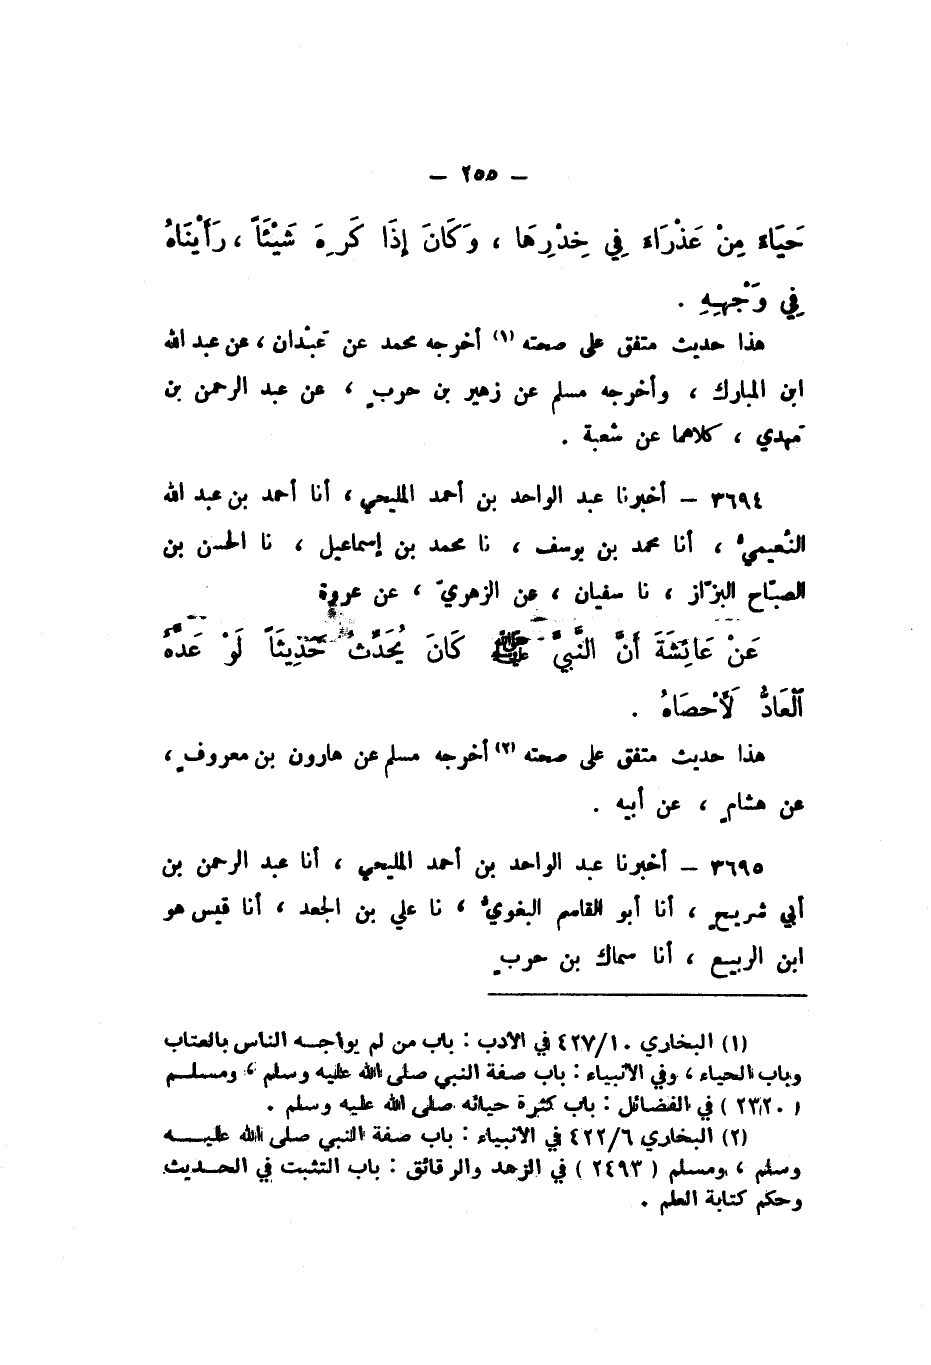 – ٢٥٥ –
حَيَاءً مِنْ عَذْرَاءَ فِي خِدْرِهَا ، وَكَانَ إِذَا كَرِهَ شَيْئَاً ، رَأَيْنَاهُ
فِي وَجْهِهِ .
هذا حديث متفق على صحته (١) أخرجه محمد عن عَبْدان ، عن عبد الله
ابن المبارك ، وأخرجه مسلم عن زهير بن حربٍ ، عن عبد الرحمن بن
مَهدي ، كلاهما عن شعبة .
٣٦٩٤ – أخبرنا عبد الواحد بن أحمد المليحي ، أنا أحمد بن عبد الله
النُّعيميُّ ، أنا محمد بن يوسف ، نا محمد بن إسماعيل ، نا الحسن بن
الصبّاح البزّاز ، نا سفيان ، عن الزهريّ ، عن عروة
عَنْ عَائِشَةَ أَنَّ النَّبِيَّ ﷺ كَانَ يُحَدِّثُ حَدِيثَاً لَوْ عَدَّهُ
الْعَادُّ لَأَحْصَاهُ .
هذا حديث متفق على صحته (٢) أخرجه مسلم عن هارون بن معروفٍ ،
عن هشامٍ ، عن أبيه .
٣٦٩٥ – أخبرنا عبد الواحد بن أحمد المليحي ، أنا عبد الرحمن بن
أبي شريحٍ ، أنا أبو القاسم البغويُّ ، نا علي بن الجعد ، أنا قيس هو
ابن الربيع ، أنا سماك بن حربٍ
(١) البخاري ٤٢٧/١٠ في الأدب : باب من لم يواجه الناس بالعتاب
وباب الحياء ، وفي الأنبياء : باب صفة النبي صلى الله عليه وسلم ، ومسلم
(٢٣٢٠) في الفضائل : باب كثرة حيائه صلى الله عليه وسلم .
(٢) البخاري ٤٢٢/٦ في الأنبياء : باب صفة النبي صلى الله عليه
وسلم ، ومسلم (٢٤٩٣) في الزهد والرقائق : باب التثبت في الحديث
وحكم كتابة العلم .